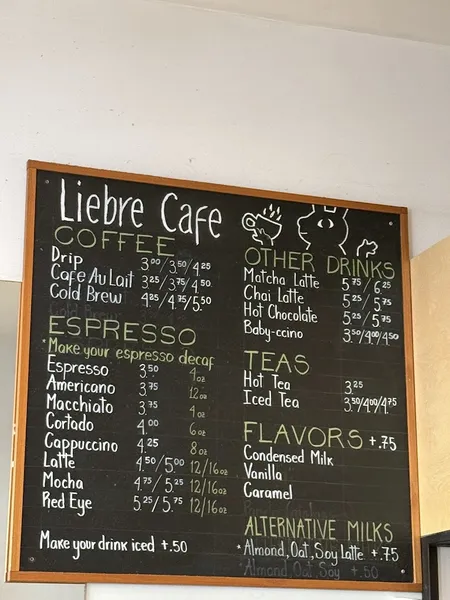 Liebre Cafe
COFFEE
Drip 3.00/3.50/4.25
Cafe Au Lait 3.25/3.75/4.50
Cold Brew 4.25/4.75/5.50
ESPRESSO
*Make your espresso decaf
Espresso 3.50 4oz
Americano 3.75 12oz
Macchiato 3.75 4oz
Cortado 4.00 6oz
Cappuccino 4.25 8oz
Latte 4.50/5.00 12/16oz
Mocha 4.75/5.25 12/16oz
Red Eye 5.25/5.75 12/16oz
Make your drink iced +.50
OTHER DRINKS
Matcha Latte 5.75/6.25
Chai Latte 5.25/5.75
Hot Chocolate 5.25/5.75
Baby-ccino 3.50/4.00/4.50
TEAS
Hot Tea 3.25
Iced Tea 3.50/4.00/4.75
FLAVORS +.75
Condensed Milk
Vanilla
Caramel
ALTERNATIVE MILKS
*Almond, Oat, Soy Latte +.75
*Almond, Oat, Soy +.50